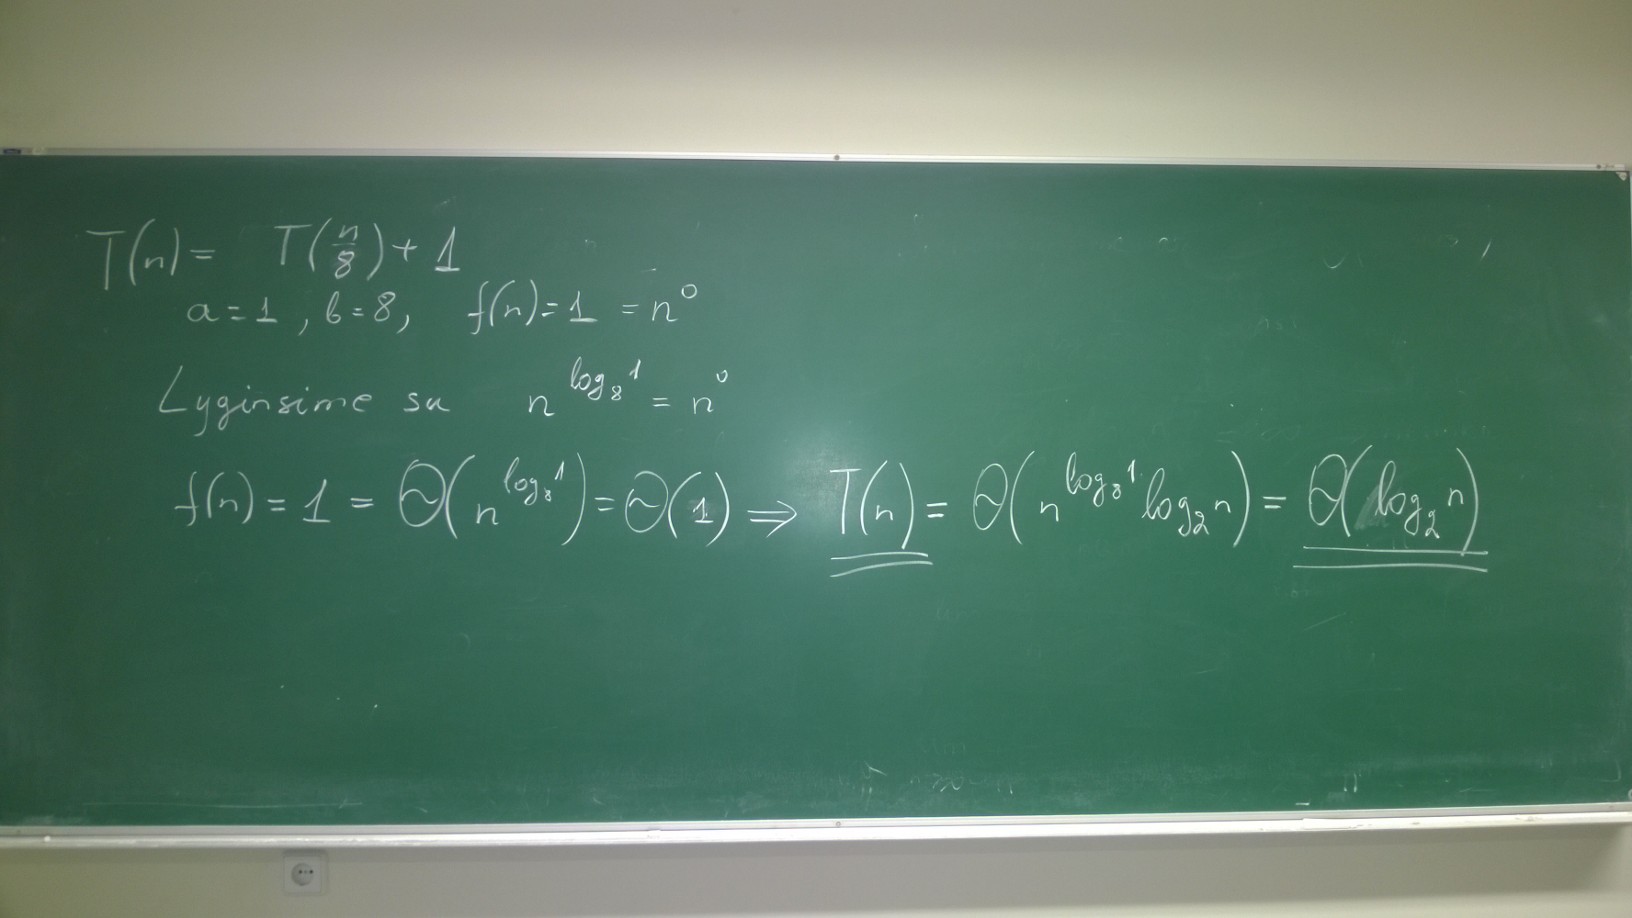 T(n) = T(n/8) + 1
a = 1, b = 8, f(n) = 1 = n⁰
Lyginsime su n^(log₈1) = n⁰
f(n) = 1 = Θ(n^(log₈1)) = Θ(1) ⇒ T(n) = Θ(n^(log₈1) log₂n) = Θ(log₂n)